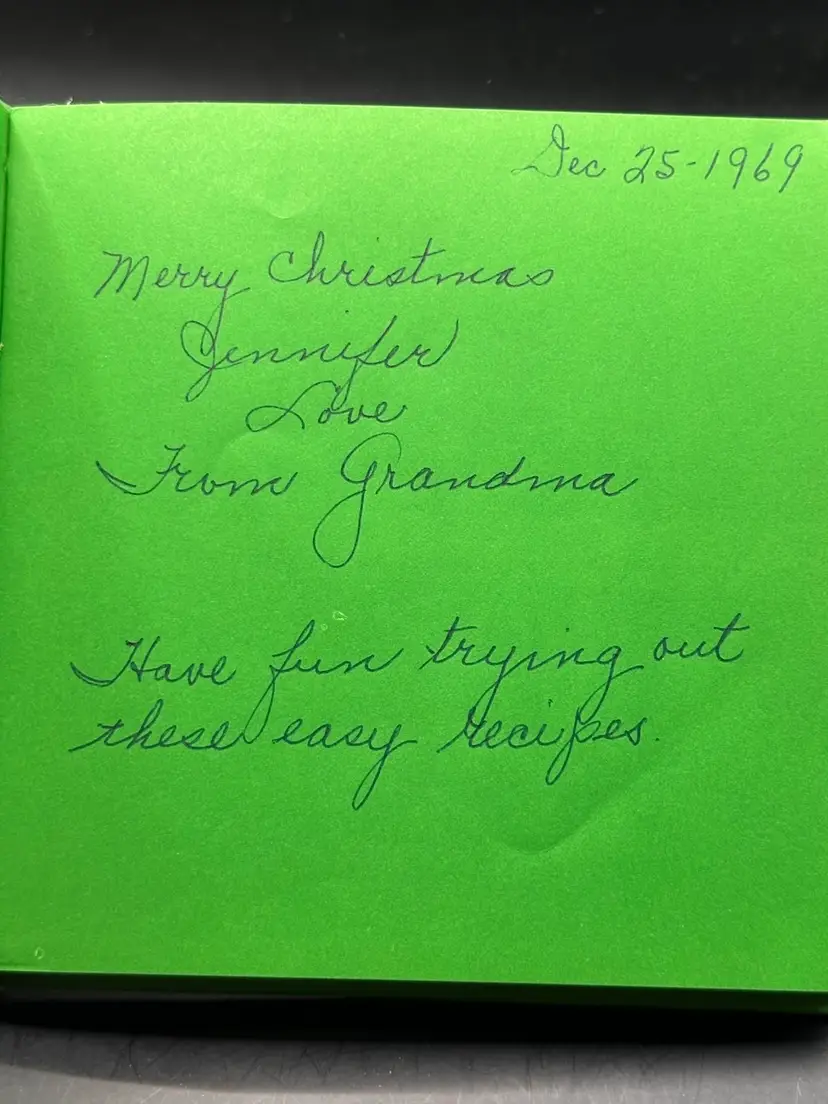 Dec 25-1969
Merry Christmas
Jennifer
Love
From Grandma
Have fun trying out
these easy recipes.